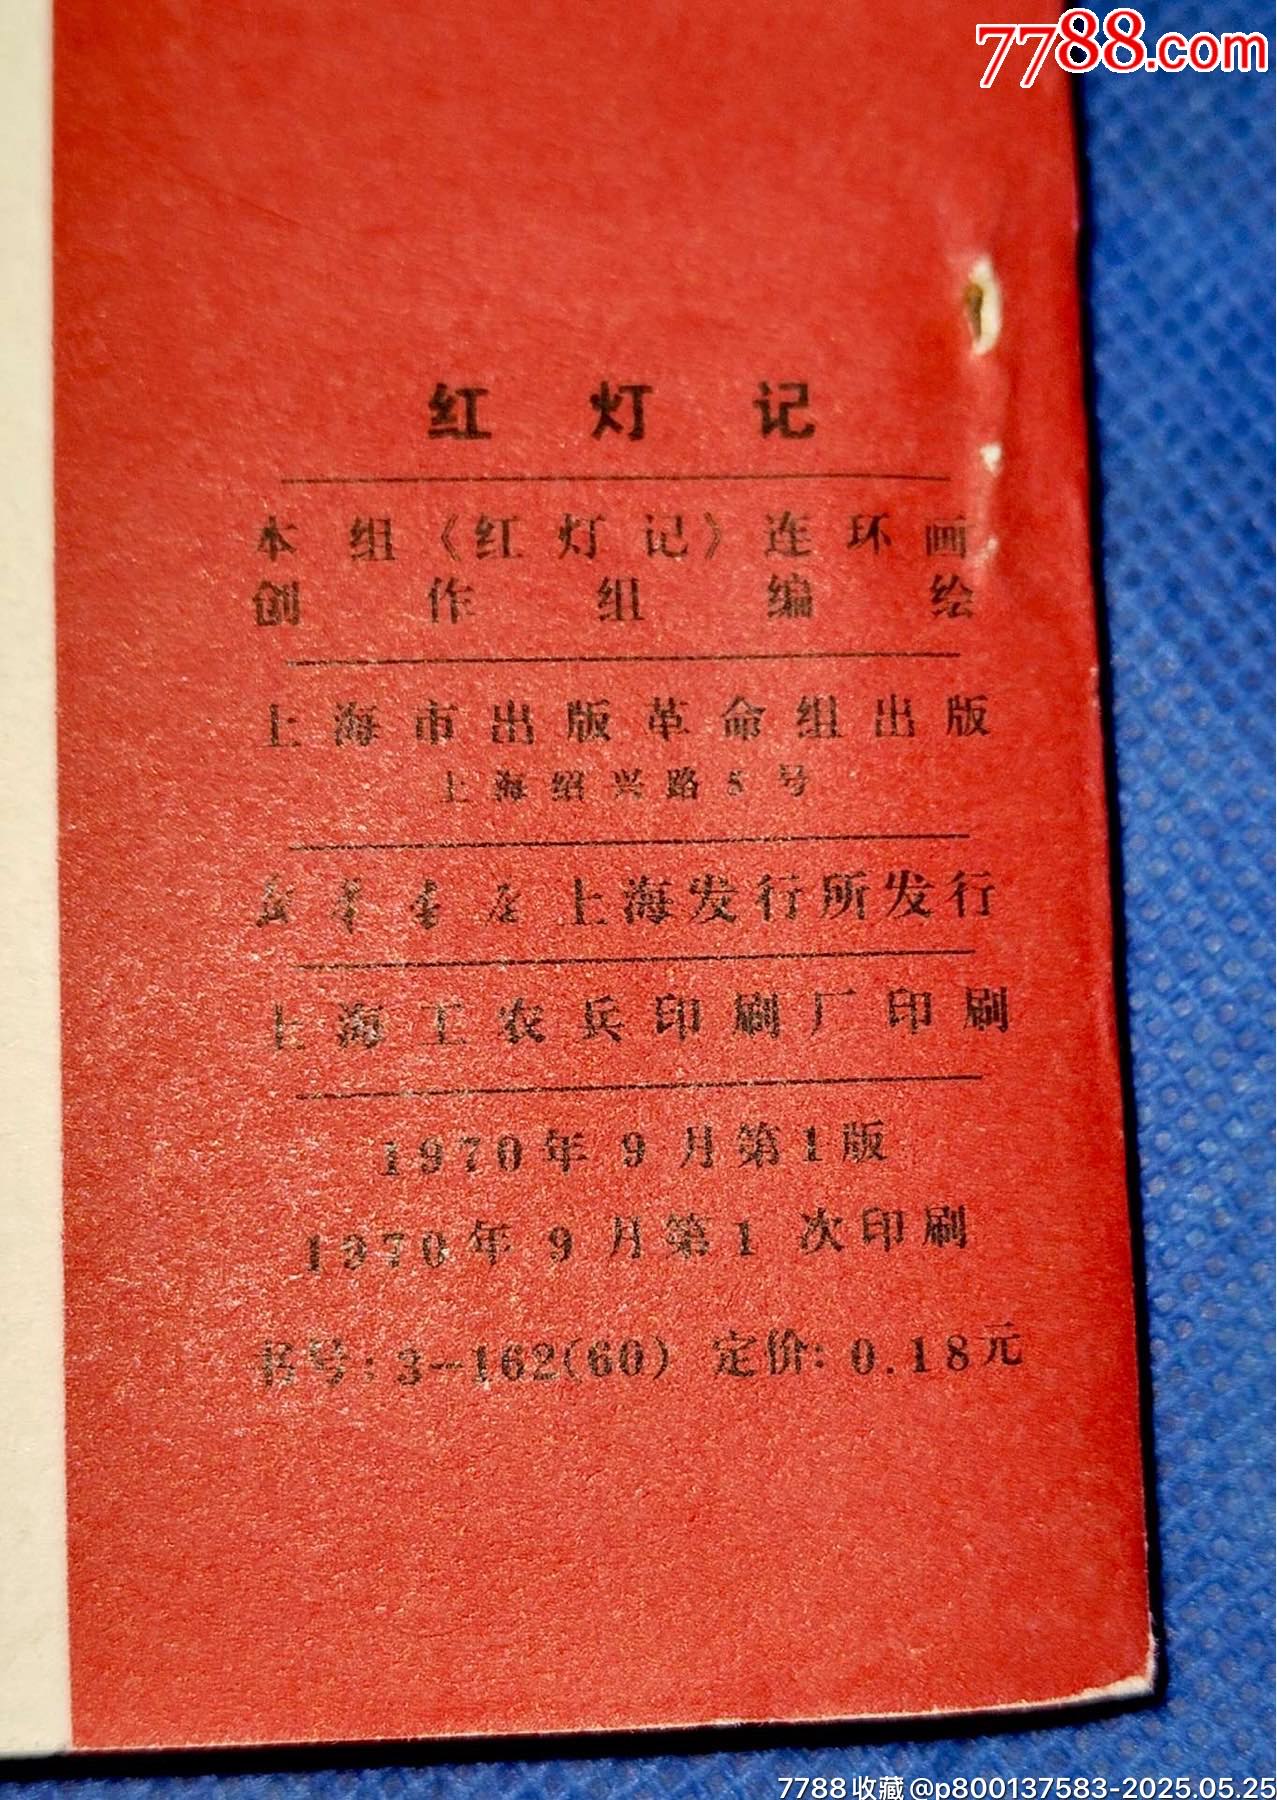 7788.com
红灯记
本组《红灯记》连环画
创作组编绘
上海市出版革命组出版
上海绍兴路5号
新华书店上海发行所发行
上海工农兵印刷厂印刷
1970年9月第1版
1970年9月第1次印刷
书号:3—162(60) 定价:0.18元
7788收藏@p800137583-2025.05.25